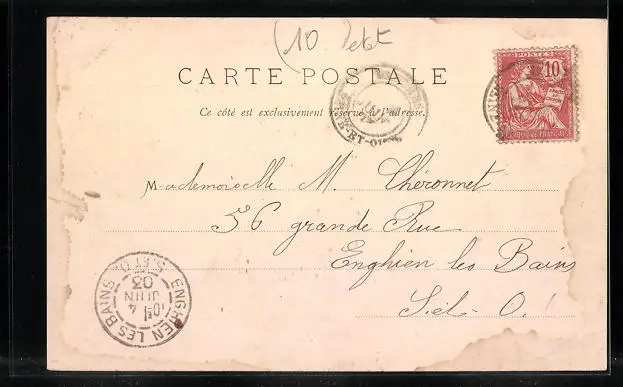 (10 
CARTE POSTALE
Ce côté est exclusivement réservé à l'adresse.
POSTES
10
RÉPUBLIQUE FRANÇAISE
SEINE-ET-OISE
Mademoiselle M. Chéronnet
56 grande Rue
Enghien les Bains
S. et O.
ENGHIEN LES BAINS
S. ET O.
4
JUIN
03